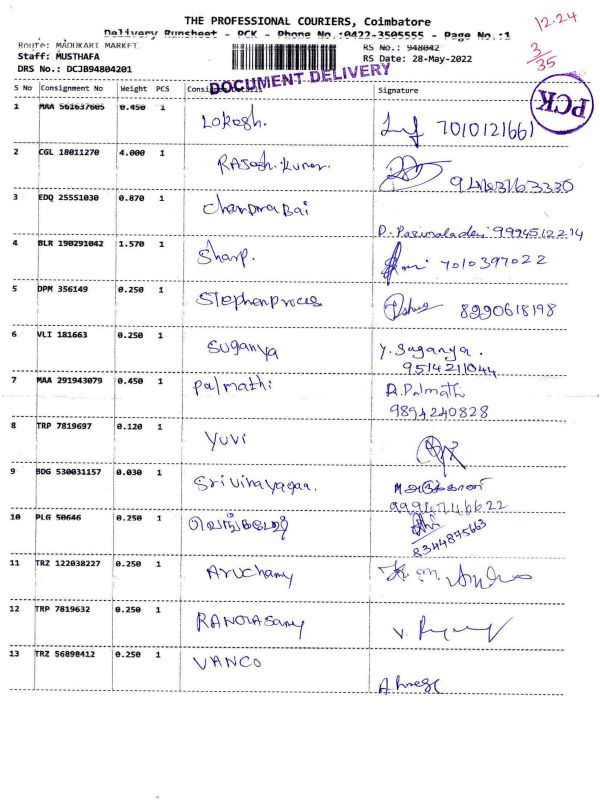 THE PROFESSIONAL COURIERS, Coimbatore
Delivery Runsheet - PCK - Phone No.:0422-3505555 - Page No.:1
12-24
3/35
Route: MADUKARI MARKET
RS No.: 948042
Staff: MUSTHAFA
RS Date: 28-May-2022
DRS No.: DCJB94804201
DOCUMENT DELIVERY
PCK
S No Consignment No Weight PCS Consignee Details Signature
1 MAA 561637605 0.450 1 Lokesh. 7010121661
2 CGL 18011270 4.000 1 RAJesh.Kumar.
3 EDQ 25551030 0.870 1 Chandra Bai
D. Parimaladevi 9994512214
4 BLR 190291042 1.570 1 Sharp. 7010397022
5 DPM 356149 0.250 1 Stephen 8220618198
6 VLI 181663 0.250 1 Suganya Y. Suganya.
9514211044
7 MAA 291943079 0.450 1 Palmathi A. Palmathi
9894240828
8 TRP 7819697 0.120 1 Yuvi
9 BDG 530031157 0.030 1 Srivinayagaa.
10 PLG 50646 0.250 1
8344875663
11 TRZ 122038227 0.250 1 Aruchamy
12 TRP 7819632 0.250 1
13 TRZ 56898412 0.250 1 VANCO